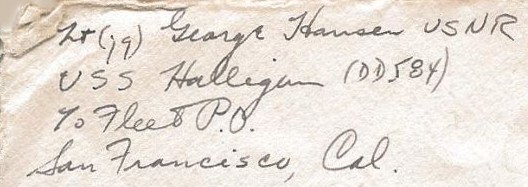 Lt (jg) George Hansen USNR
USS Halligan (DD584)
℅ Fleet P.O.
San Francisco, Cal.